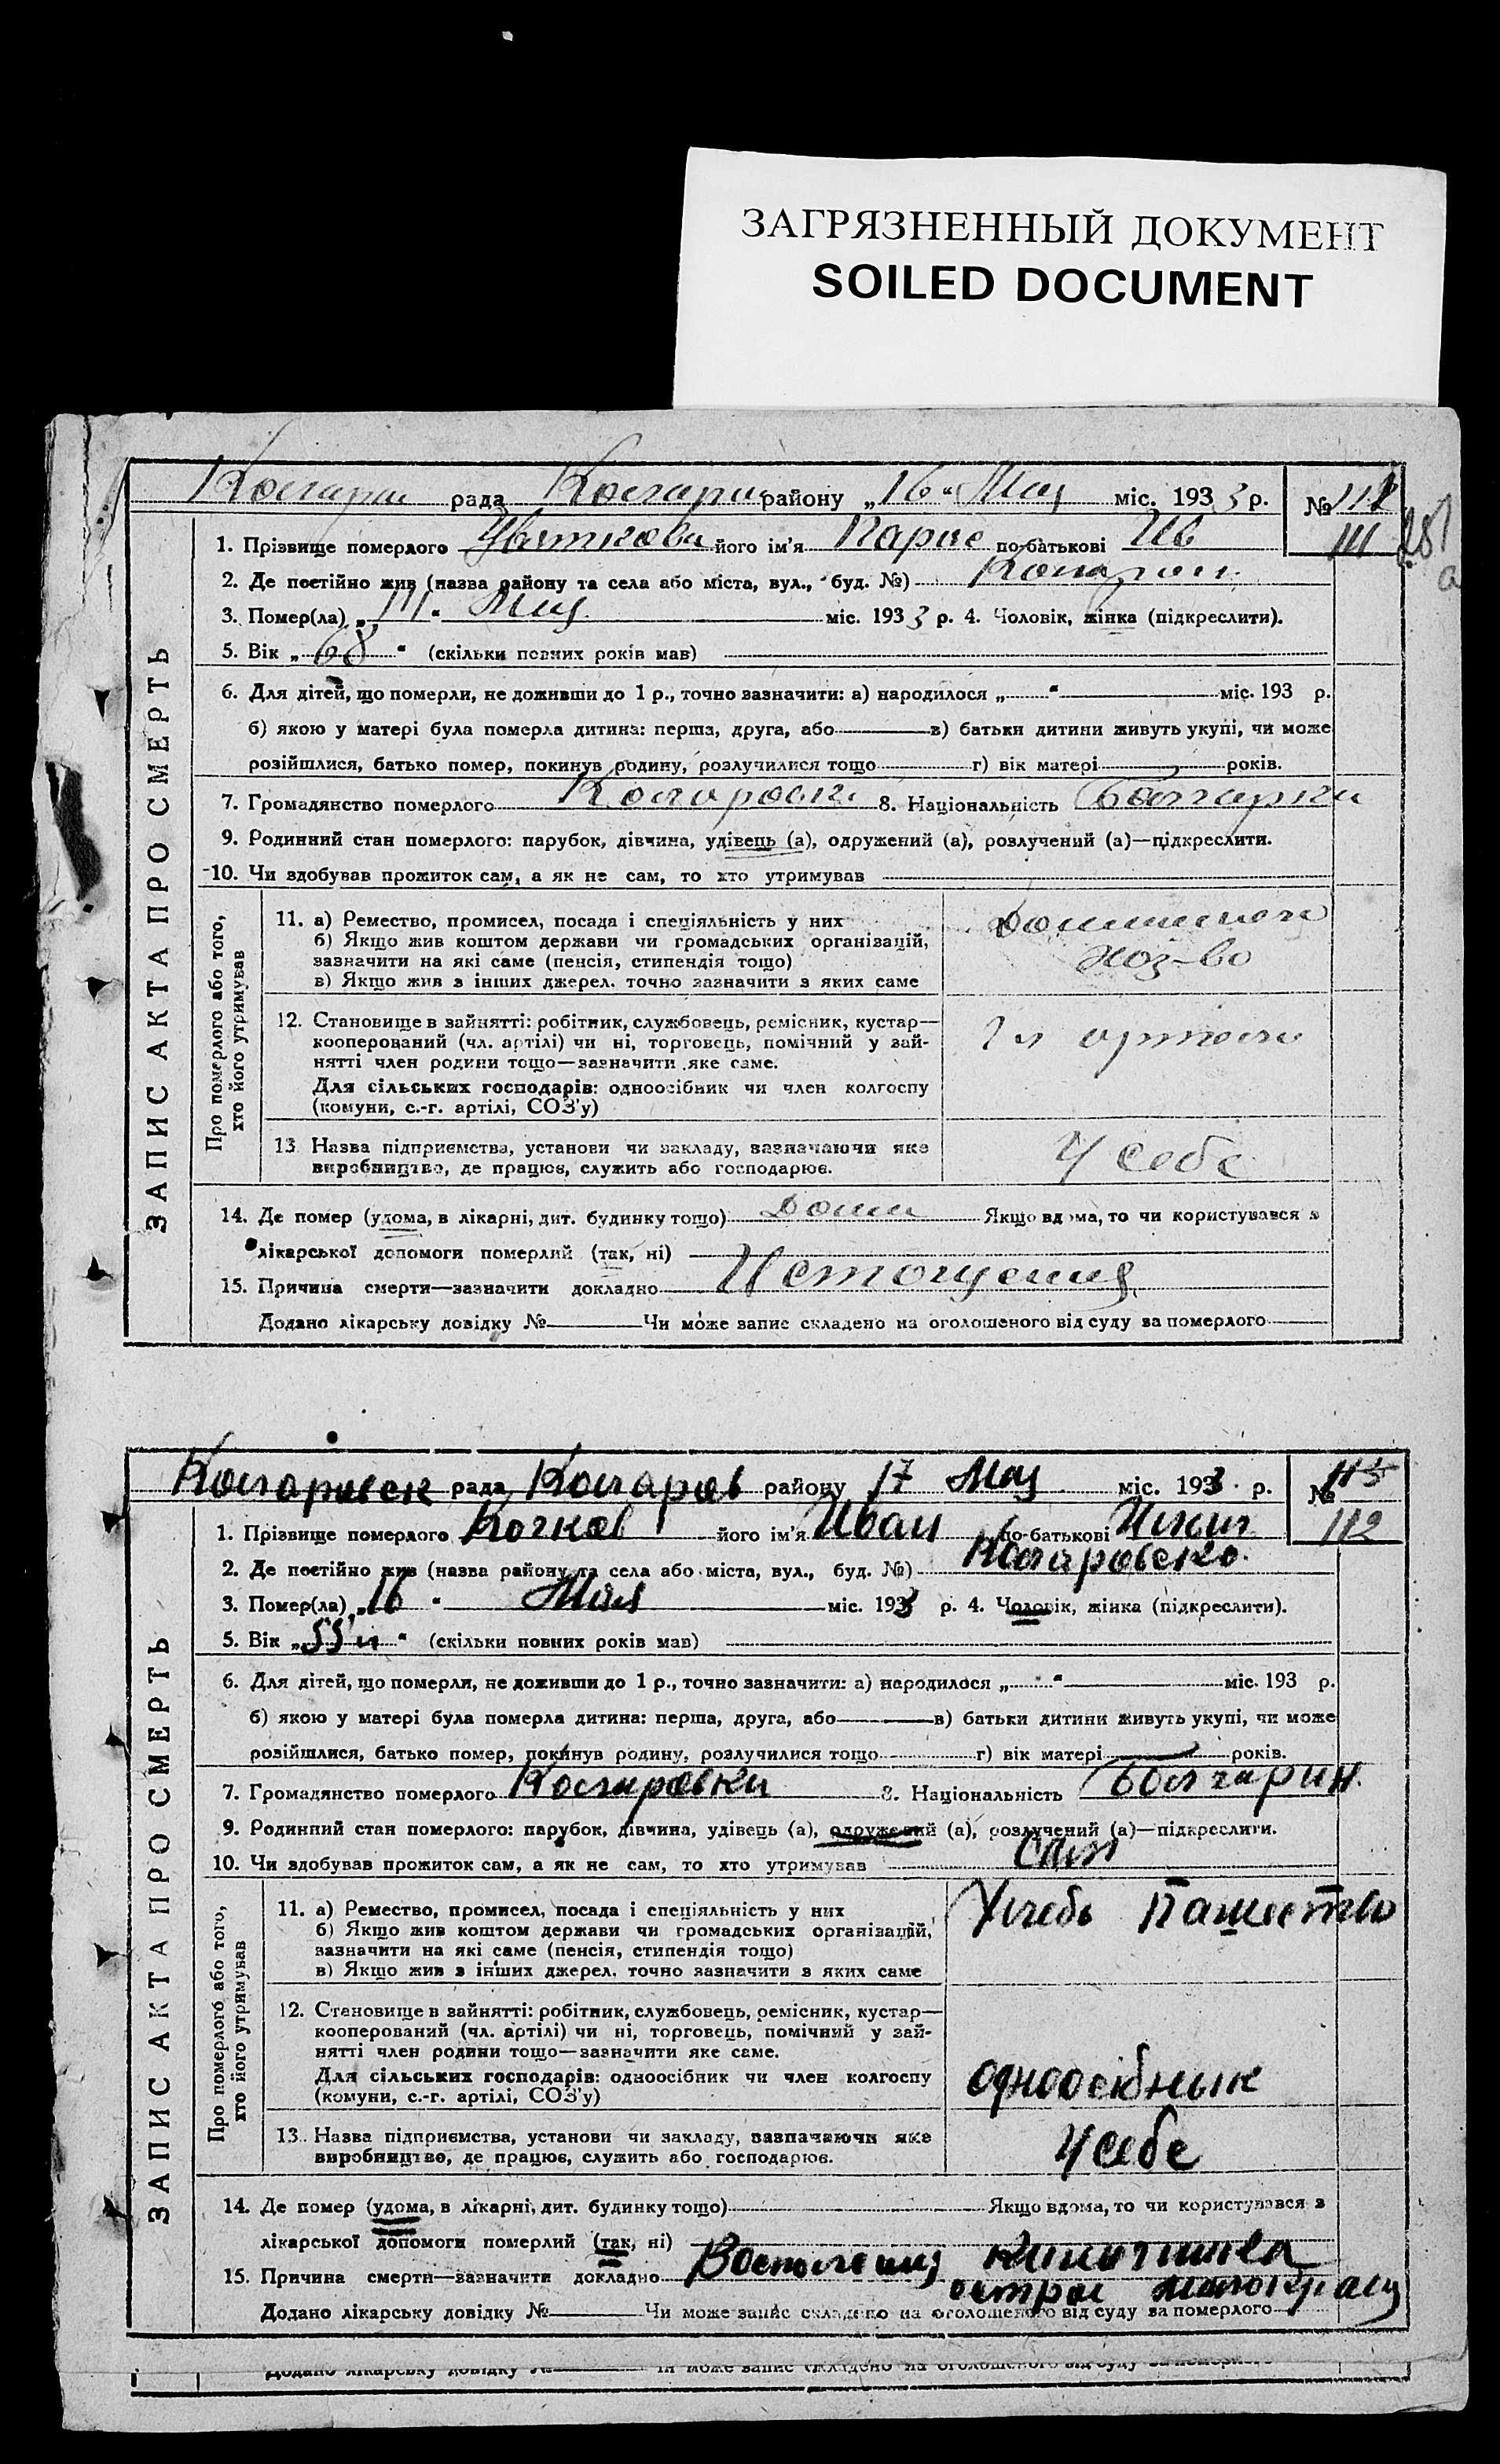 ЗАГРЯЗНЕННЫЙ ДОКУМЕНТ
SOILED DOCUMENT
рада району „16“ Мая міс. 1933 р. №
111
1. Прізвище померлого його ім'я по-батькові Ив
2. Де постійно жив (назва району та села або міста, вул., буд. №)
3. Помер(ла) „ “ Мая міс. 1933 р. 4. Чоловік, жінка (підкреслити).
5. Вік „68“ (скільки повних років мав)
6. Для дітей, що померли, не доживши до 1 р., точно зазначити: а) народилося „ “ міс. 193 р.
б) якою у матері була померла дитина: перша, друга, або в) батьки дитини живуть укупі, чи може
розійшлися, батько помер, покинув родину, розлучилися тощо г) вік матері років.
7. Громадянство померлого 8. Національність Болгарка
9. Родинний стан померлого: парубок, дівчина, удівець (а), одружений (а), розлучений (а)—підкреслити.
10. Чи здобував прожиток сам, а як не сам, то хто утримував
ЗАПИС АКТА ПРО СМЕРТЬ
Про померлого або того, хто його утримував
11. а) Ремество, промисел, посада і спеціяльність у них
б) Якщо жив коштом держави чи громадських організацій,
зазначити на які саме (пенсія, стипендія тощо)
в) Якщо жив з інших джерел, точно зазначити з яких саме
хоз-во
12. Становище в зайнятті: робітник, службовець, ремісник, кустар—
кооперований (чл. артілі) чи ні, торговець, помічний у зай-
нятті член родини тощо—зазначити яке саме.
Для сільських господарів: одноосібник чи член колгоспу
(комуни, с.-г. артілі, СОЗ'у)
13. Назва підприємства, установи чи закладу, зазначаючи яке
виробництво, де працює, служить або господарює.
У себе
14. Де помер (удома, в лікарні, дит. будинку тощо) Дома Якщо вдома, то чи користувався з
лікарської допомоги померлий (так, ні)
15. Причина смерти—зазначити докладно Истощения
Додано лікарську довідку № Чи може запис складено на оголошеного від суду за померлого
рада району 17 Мая міс. 1933 р. № 113
112
1. Прізвище померлого Кочков його ім'я Иван по-батькові
2. Де постійно жив (назва району та села або міста, вул., буд. №)
3. Помер(ла) „16“ Мая міс. 1933 р. 4. Чоловік, жінка (підкреслити).
5. Вік „55 “ (скільки повних років мав)
6. Для дітей, що померли, не доживши до 1 р., точно зазначити: а) народилося „ “ міс. 193 р.
б) якою у матері була померла дитина: перша, друга, або в) батьки дитини живуть укупі, чи може
розійшлися, батько помер, покинув родину, розлучилися тощо г) вік матері років.
7. Громадянство померлого 8. Національність Болгарин
9. Родинний стан померлого: парубок, дівчина, удівець (а), одружений (а), розлучений (а)—підкреслити.
10. Чи здобував прожиток сам, а як не сам, то хто утримував Сам
ЗАПИС АКТА ПРО СМЕРТЬ
Про померлого або того, хто його утримував
11. а) Ремество, промисел, посада і спеціяльність у них
б) Якщо жив коштом держави чи громадських організацій,
зазначити на які саме (пенсія, стипендія тощо)
в) Якщо жив з інших джерел, точно зазначити з яких саме
12. Становище в зайнятті: робітник, службовець, ремісник, кустар—
кооперований (чл. артілі) чи ні, торговець, помічний у зай-
нятті член родини тощо—зазначити яке саме.
Для сільських господарів: одноосібник чи член колгоспу
(комуни, с.-г. артілі, СОЗ'у)
13. Назва підприємства, установи чи закладу, зазначаючи яке
виробництво, де працює, служить або господарює.
У себе
14. Де помер (удома, в лікарні, дит. будинку тощо) Якщо вдома, то чи користувався з
лікарської допомоги померлий (так, ні)
15. Причина смерти—зазначити докладно
Додано лікарську довідку № Чи може запис складено на оголошеного від суду за померлого
Додано лікарську довідку № Чи може запис складено на оголошеного від суду за померлого